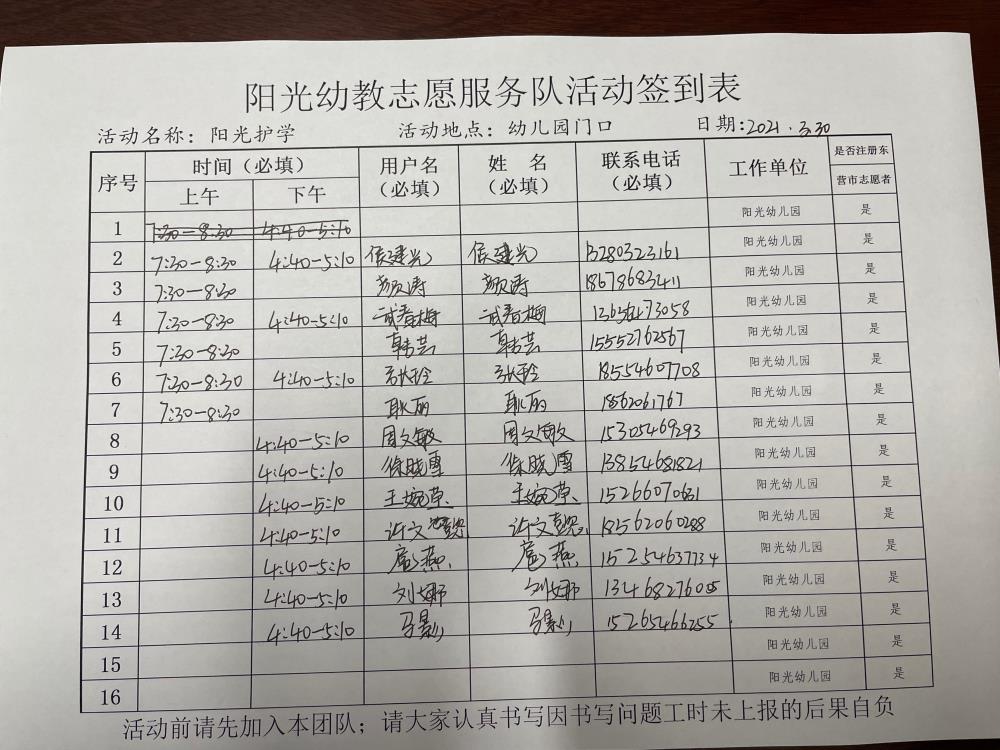 阳光幼教志愿服务队活动签到表
活动名称：阳光护学 活动地点：幼儿园门口 日期：2021.3.30
序号 时间（必填） 用户名（必填） 姓名（必填） 联系电话（必填） 工作单位 是否注册东营市志愿者
上午 下午
1 7:30-8:30 4:40-5:10 阳光幼儿园 是
2 7:30-8:30 4:40-5:10 侯建光 侯建光 13280323161 阳光幼儿园 是
3 7:30-8:30 颜涛 颜涛 18678683411 阳光幼儿园 是
4 7:30-8:30 4:40-5:10 武春梅 武春梅 阳光幼儿园 是
5 7:30-8:30 韩芸 韩芸 15552762567 阳光幼儿园 是
6 7:30-8:30 4:40-5:10 张玲 张玲 18554607708 阳光幼儿园 是
7 7:30-8:30 耿丽 耿丽 1862061767 阳光幼儿园 是
8 4:40-5:10 周文敏 周文敏 15305469293 阳光幼儿园 是
9 4:40-5:10 徐晓雪 徐晓雪 13854681821 阳光幼儿园 是
10 4:40-5:10 王婉莹 王婉莹 15266070631 阳光幼儿园 是
11 4:40-5:10 许文 许文 18562060288 阳光幼儿园 是
12 4:40-5:10 燕 燕 15254637734 阳光幼儿园 是
13 4:40-5:10 刘娜 刘娜 13468276005 阳光幼儿园 是
14 4:40-5:10 马 马 15265466255 阳光幼儿园 是
15 阳光幼儿园 是
16 阳光幼儿园 是
活动前请先加入本团队；请大家认真书写因书写问题工时未上报的后果自负